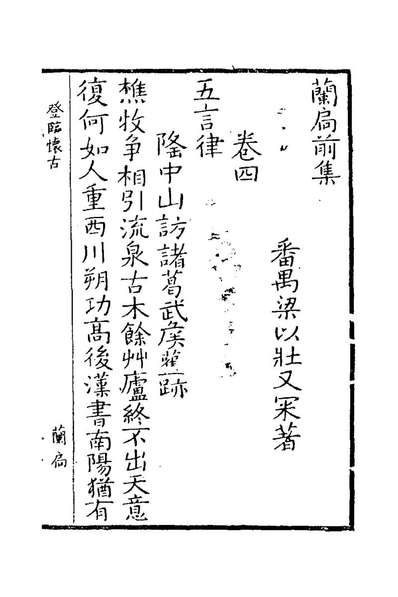 蘭扄前集
番禺梁以壯又深著
卷四
五言律
隆中山訪諸葛武侯舊跡
樵牧争相引流泉古木餘艸廬終不出天意
復何如人重西川朔功高後漢書南陽猶有
登臨懷古
蘭扄